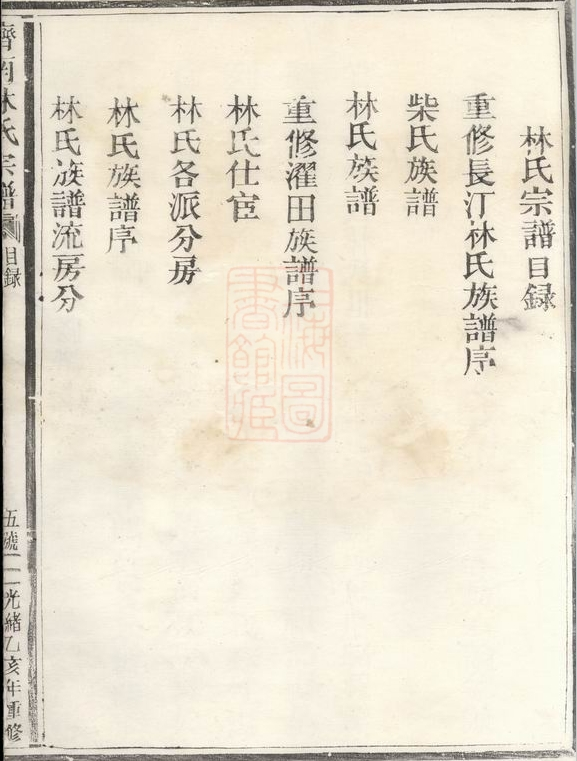 林氏宗譜目録
重修長汀林氏族譜序
柴氏族譜
林氏族譜
重修濯田族譜序
林氏仕宦
林氏各派分房
林氏族譜序
林氏族譜流房分
濟南林氏宗譜 目録
五號 光緒乙亥年重修
上海圖書館藏